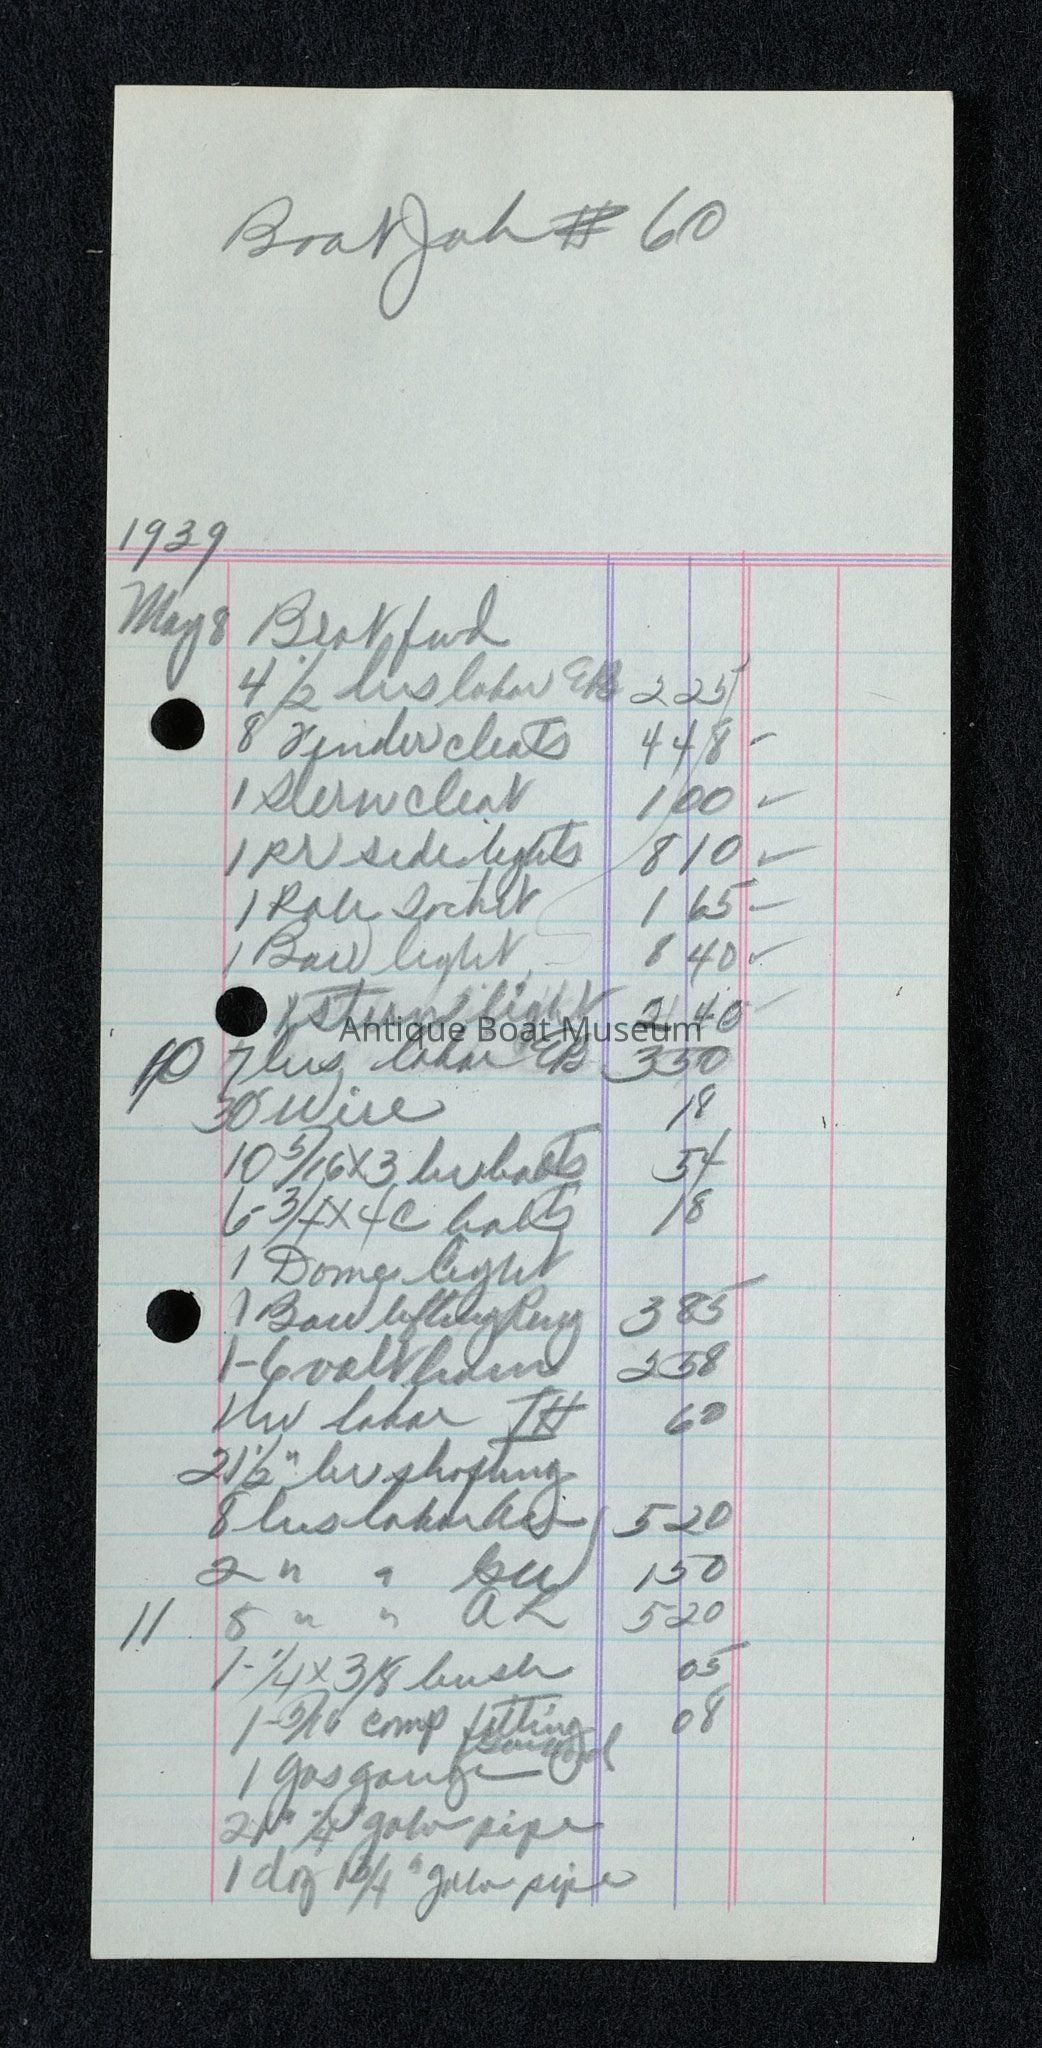 Boat Job # 60
1939
May 8 Brot fwd
4 1/2 hrs labor EB 2 25
8 Fender cleats 4 48 -
1 Stern cleat 1 00 ✓
1 pr side lights 8 10 ✓
1 Pole Socket 1 65 -
1 Bow light 8 40 ✓
1 stern light 2 40
Antique Boat Museum
10 7 hrs labor EB 3 50
30' Wire 18
10 5/16 x 3 br bolts 54
6-3/4 x 4 C bolts 18
1 Dome light
1 Bow lifting Ring 3 85
1-6 volt horn 2 58
1 hr labor TH 60
21 1/2" br shafting
8 hrs labor 5 20
2 " " 1 50
11 8 " " AL 5 20
1-1/4 x 3/8 bush 05
1-5/16 comp fitting 08
1 gas gauge
1/4" galv pipe
1 galv pipe